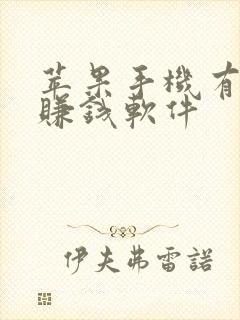 苹果手機有
賺錢軟件
伊夫弗雷諾